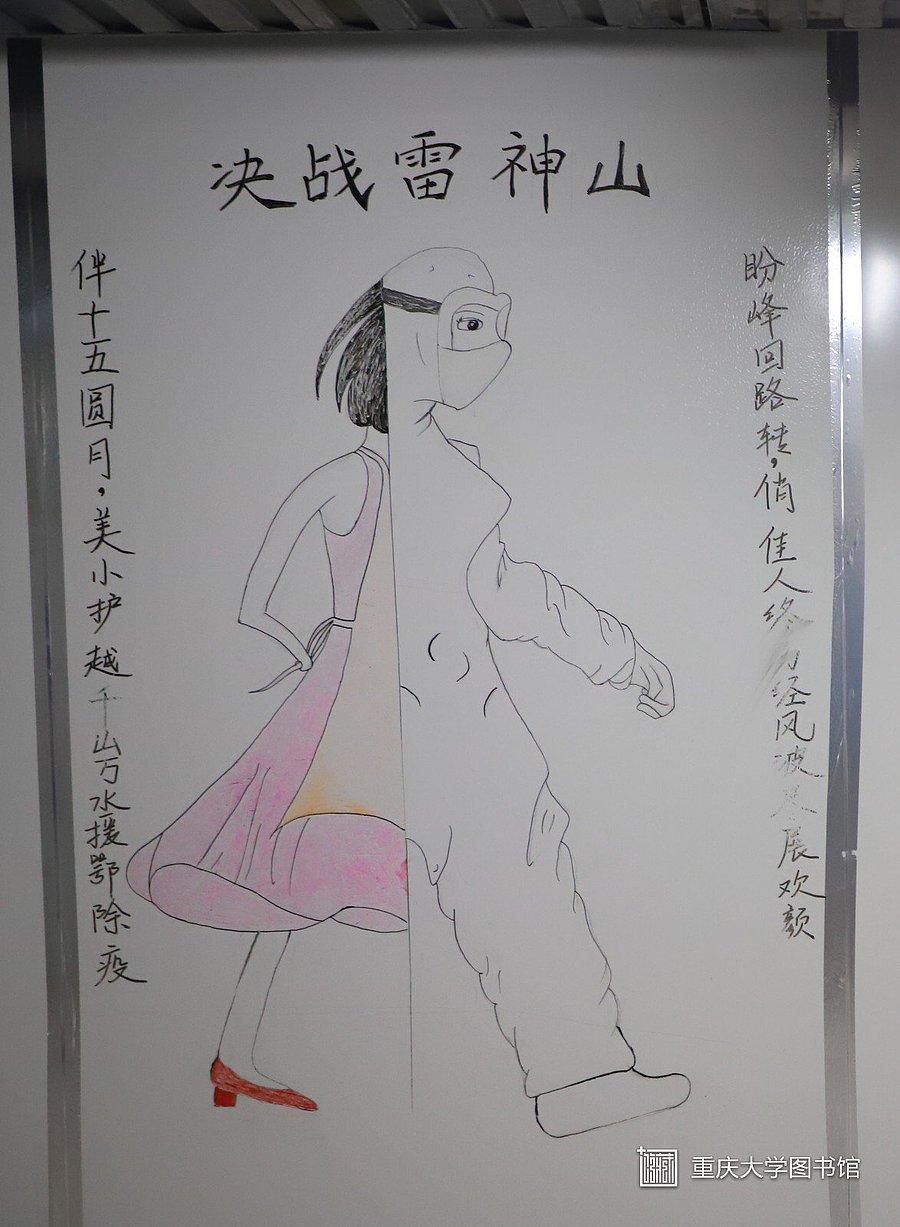 决战雷神山
伴十五圆月，美小护越千山万水援鄂除疫
盼峰回路转，俏佳人终历经风波尽展欢颜
重庆大学图书馆